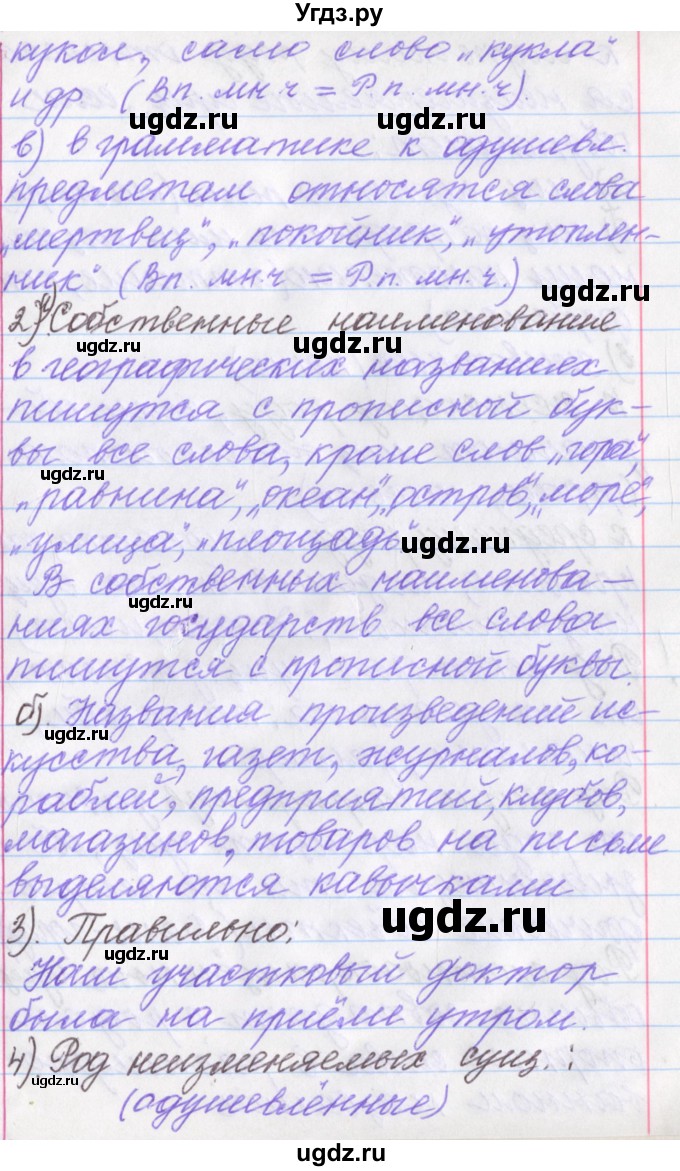 Угдз.ру
кукол, само слово „кукла"
и др (Вп. мн.ч = Р.п. мн.ч).
ugdz.ru ugdz.ru
в) в грамматике к одушевл.
предметам относятся слова
„мертвец", „покойник", „утоплен-
ник" (Вп. мн.ч = Р.п. мн.ч.)
ugdz.ru
2) а) Собственные наименование
ugdz.ru ugdz.ru
в географических названиях
пишутся с прописной бук-
вы все слова, кроме слов „гора",
ugdz.ru
„равнина", „океан", „остров", „море",
„улица", „площадь"
ugdz.ru
В собственных наименова-
ugdz.ru
ниях государств все слова
пишутся с прописной буквы.
б). Названия произведений ис-
ugdz.ru
кусства, газет, журналов, ко-
раблей, предприятий, клубов,
магазинов, товаров на письме
выделяются кавычками
3). Правильно:
ugdz.ru
Наш участковый доктор
была на приёме утром.
4) Род неизменяемых сущ. :
ugdz.ru
(одушевлённые)
ugdz.ru